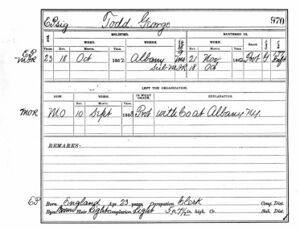 EPsig Todd, George 970
ENLISTED. MUSTERED IN.
WHEN. WHERE. WHEN.
Day. Month. Year. Day. Month.
EP 23 18 Oct 1862 Albany 21 Nov
MIR 18 Oct
LEFT THE ORGANIZATION.
HOW. WHEN. EXPLANATION.
Day. Month. Year.
MOR MO 10 Sept Pvt with Co at Albany NY.
REMARKS:
EP Born England Age 23 years Occupation Clerk
Eyes Brown Hair Light Complexion Light 5 ft high.